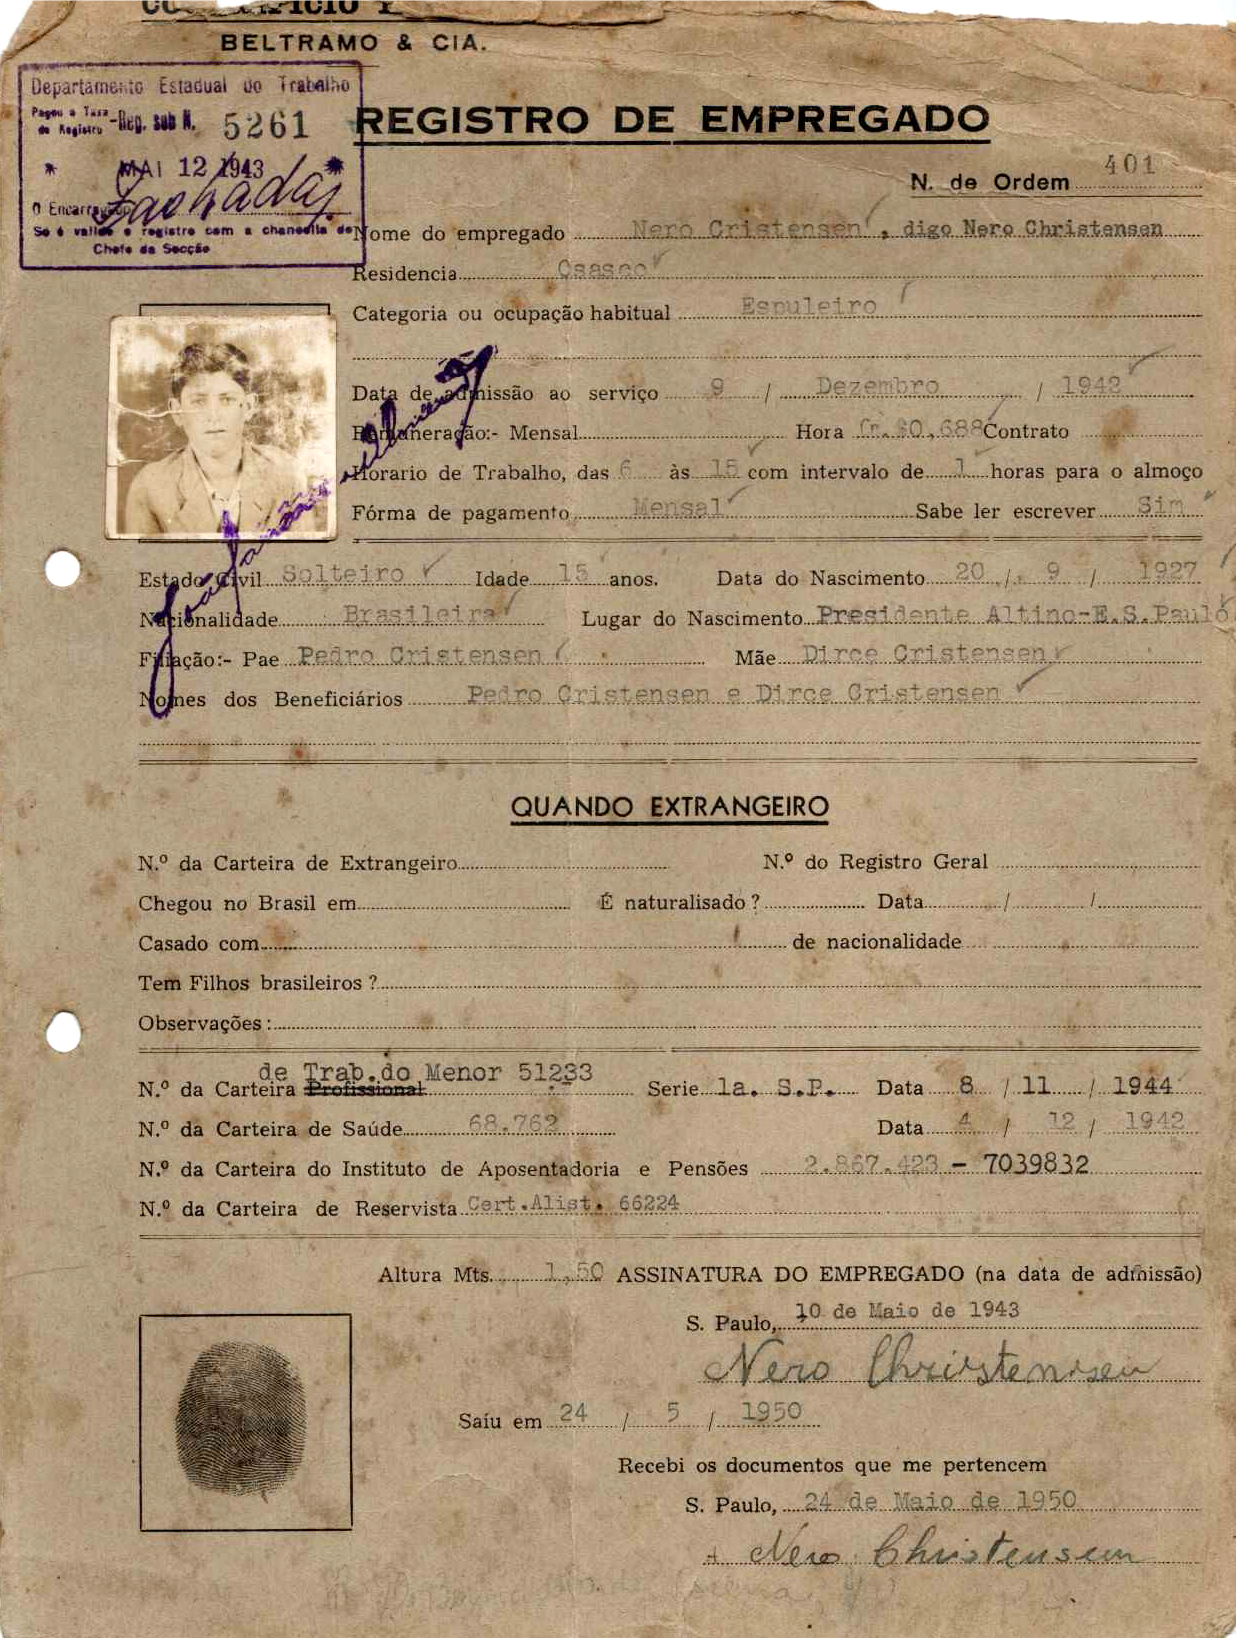 BELTRAMO & CIA.
Departamento Estadual do Trabalho
Pagou a Taxa de Registro - Reg. sob N. 5261
MAI 12 1943
O Encarregado
Só é valido o registro com a chancella do
Chefe da Secção
REGISTRO DE EMPREGADO
N. de Ordem 401
Nome do empregado Nero Cristensen, digo Nero Christensen
Residencia Osasco
Categoria ou ocupação habitual Espuleiro
Data de admissão ao serviço 9 / Dezembro / 1942
Remuneração:- Mensal Hora Cr.$0,688 Contrato
Horario de Trabalho, das 6 às 15 com intervalo de 1 horas para o almoço
Fórma de pagamento Mensal Sabe ler escrever Sim
Estado Civil Solteiro Idade 15 anos. Data do Nascimento 20 / 9 / 1927
Nacionalidade Brasileira Lugar do Nascimento Presidente Altino-E.S.Paulo
Filiação:- Pae Pedro Cristensen Mãe Dirce Cristensen
Nomes dos Beneficiários Pedro Cristensen e Dirce Cristensen
QUANDO EXTRANGEIRO
N.º da Carteira de Extrangeiro N.º do Registro Geral
Chegou no Brasil em É naturalisado? Data / /
Casado com de nacionalidade
Tem Filhos brasileiros?
Observações:
de Trab.do Menor 51233
N.º da Carteira Profissional Serie 1a. S.P. Data 8 / 11 / 1944
N.º da Carteira de Saúde 68.762 Data 4 / 12 / 1942
N.º da Carteira do Instituto de Aposentadoria e Pensões 2.867.423 - 7039832
N.º da Carteira de Reservista Cert.Alist. 66224
Altura Mts. 1,50 ASSINATURA DO EMPREGADO (na data de admissão)
S. Paulo, 10 de Maio de 1943
Nero Christensen
Saíu em 24 / 5 / 1950
Recebi os documentos que me pertencem
S. Paulo, 24 de Maio de 1950
Nero Christensen